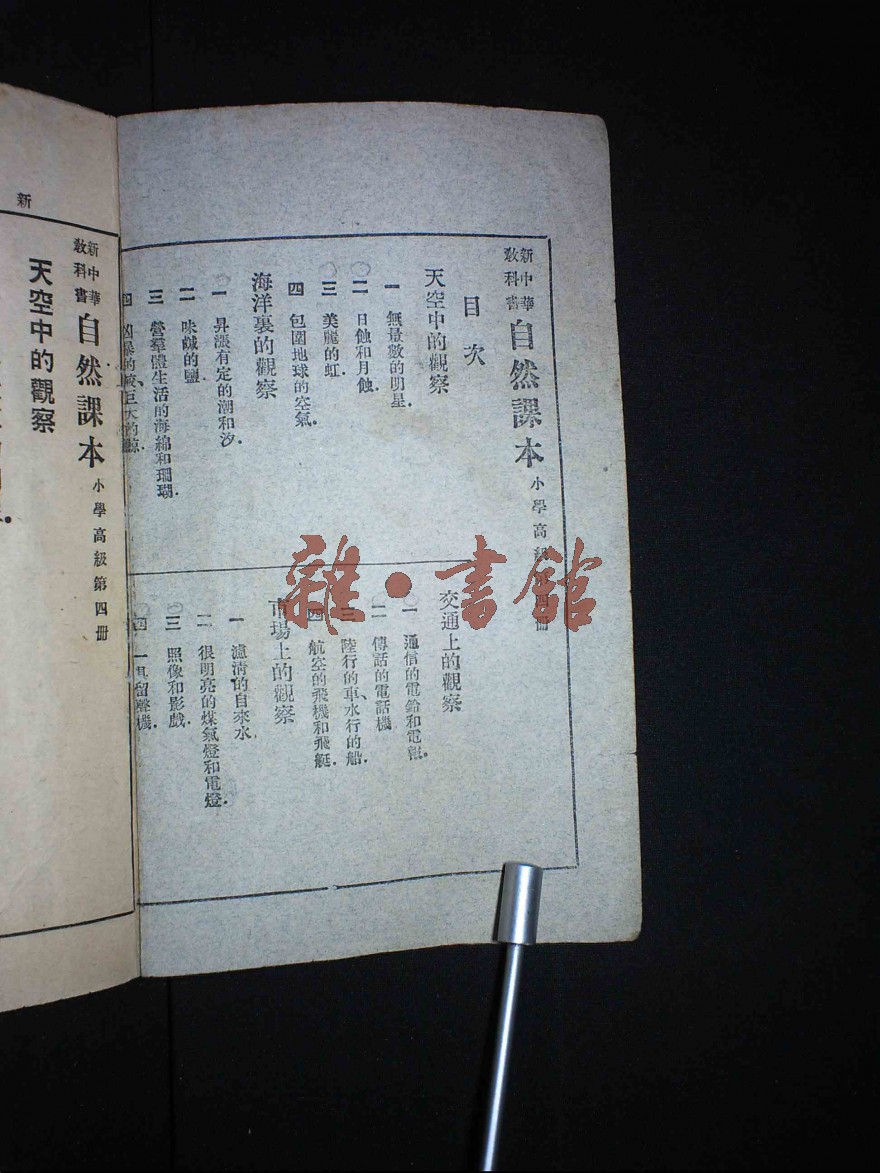 新中華
教科書
自然課本
小學高級第四冊
目次
天空中的觀察
一 無量數的明星.
二 日蝕和月蝕.
三 美麗的虹.
四 包圍地球的空氣.
海洋裏的觀察
一 昇漲有定的潮和汐.
二 味鹹的鹽
三 營羣體生活的海綿和珊瑚.
四 凶暴的鮫、巨大的鯨.
交通上的觀察
一 通信的電鈴和電報.
二 傳話的電話機
三 陸行的車、水行的船.
四 航空的飛機和飛艇.
市場上的觀察
一 濾清的自來水
二 很明亮的煤氣燈和電燈.
三 照像和影戲.
四 一具留聲機.
新
新中華
教科書
自然課本
小學高級第四冊
天空中的觀察
雜·書館